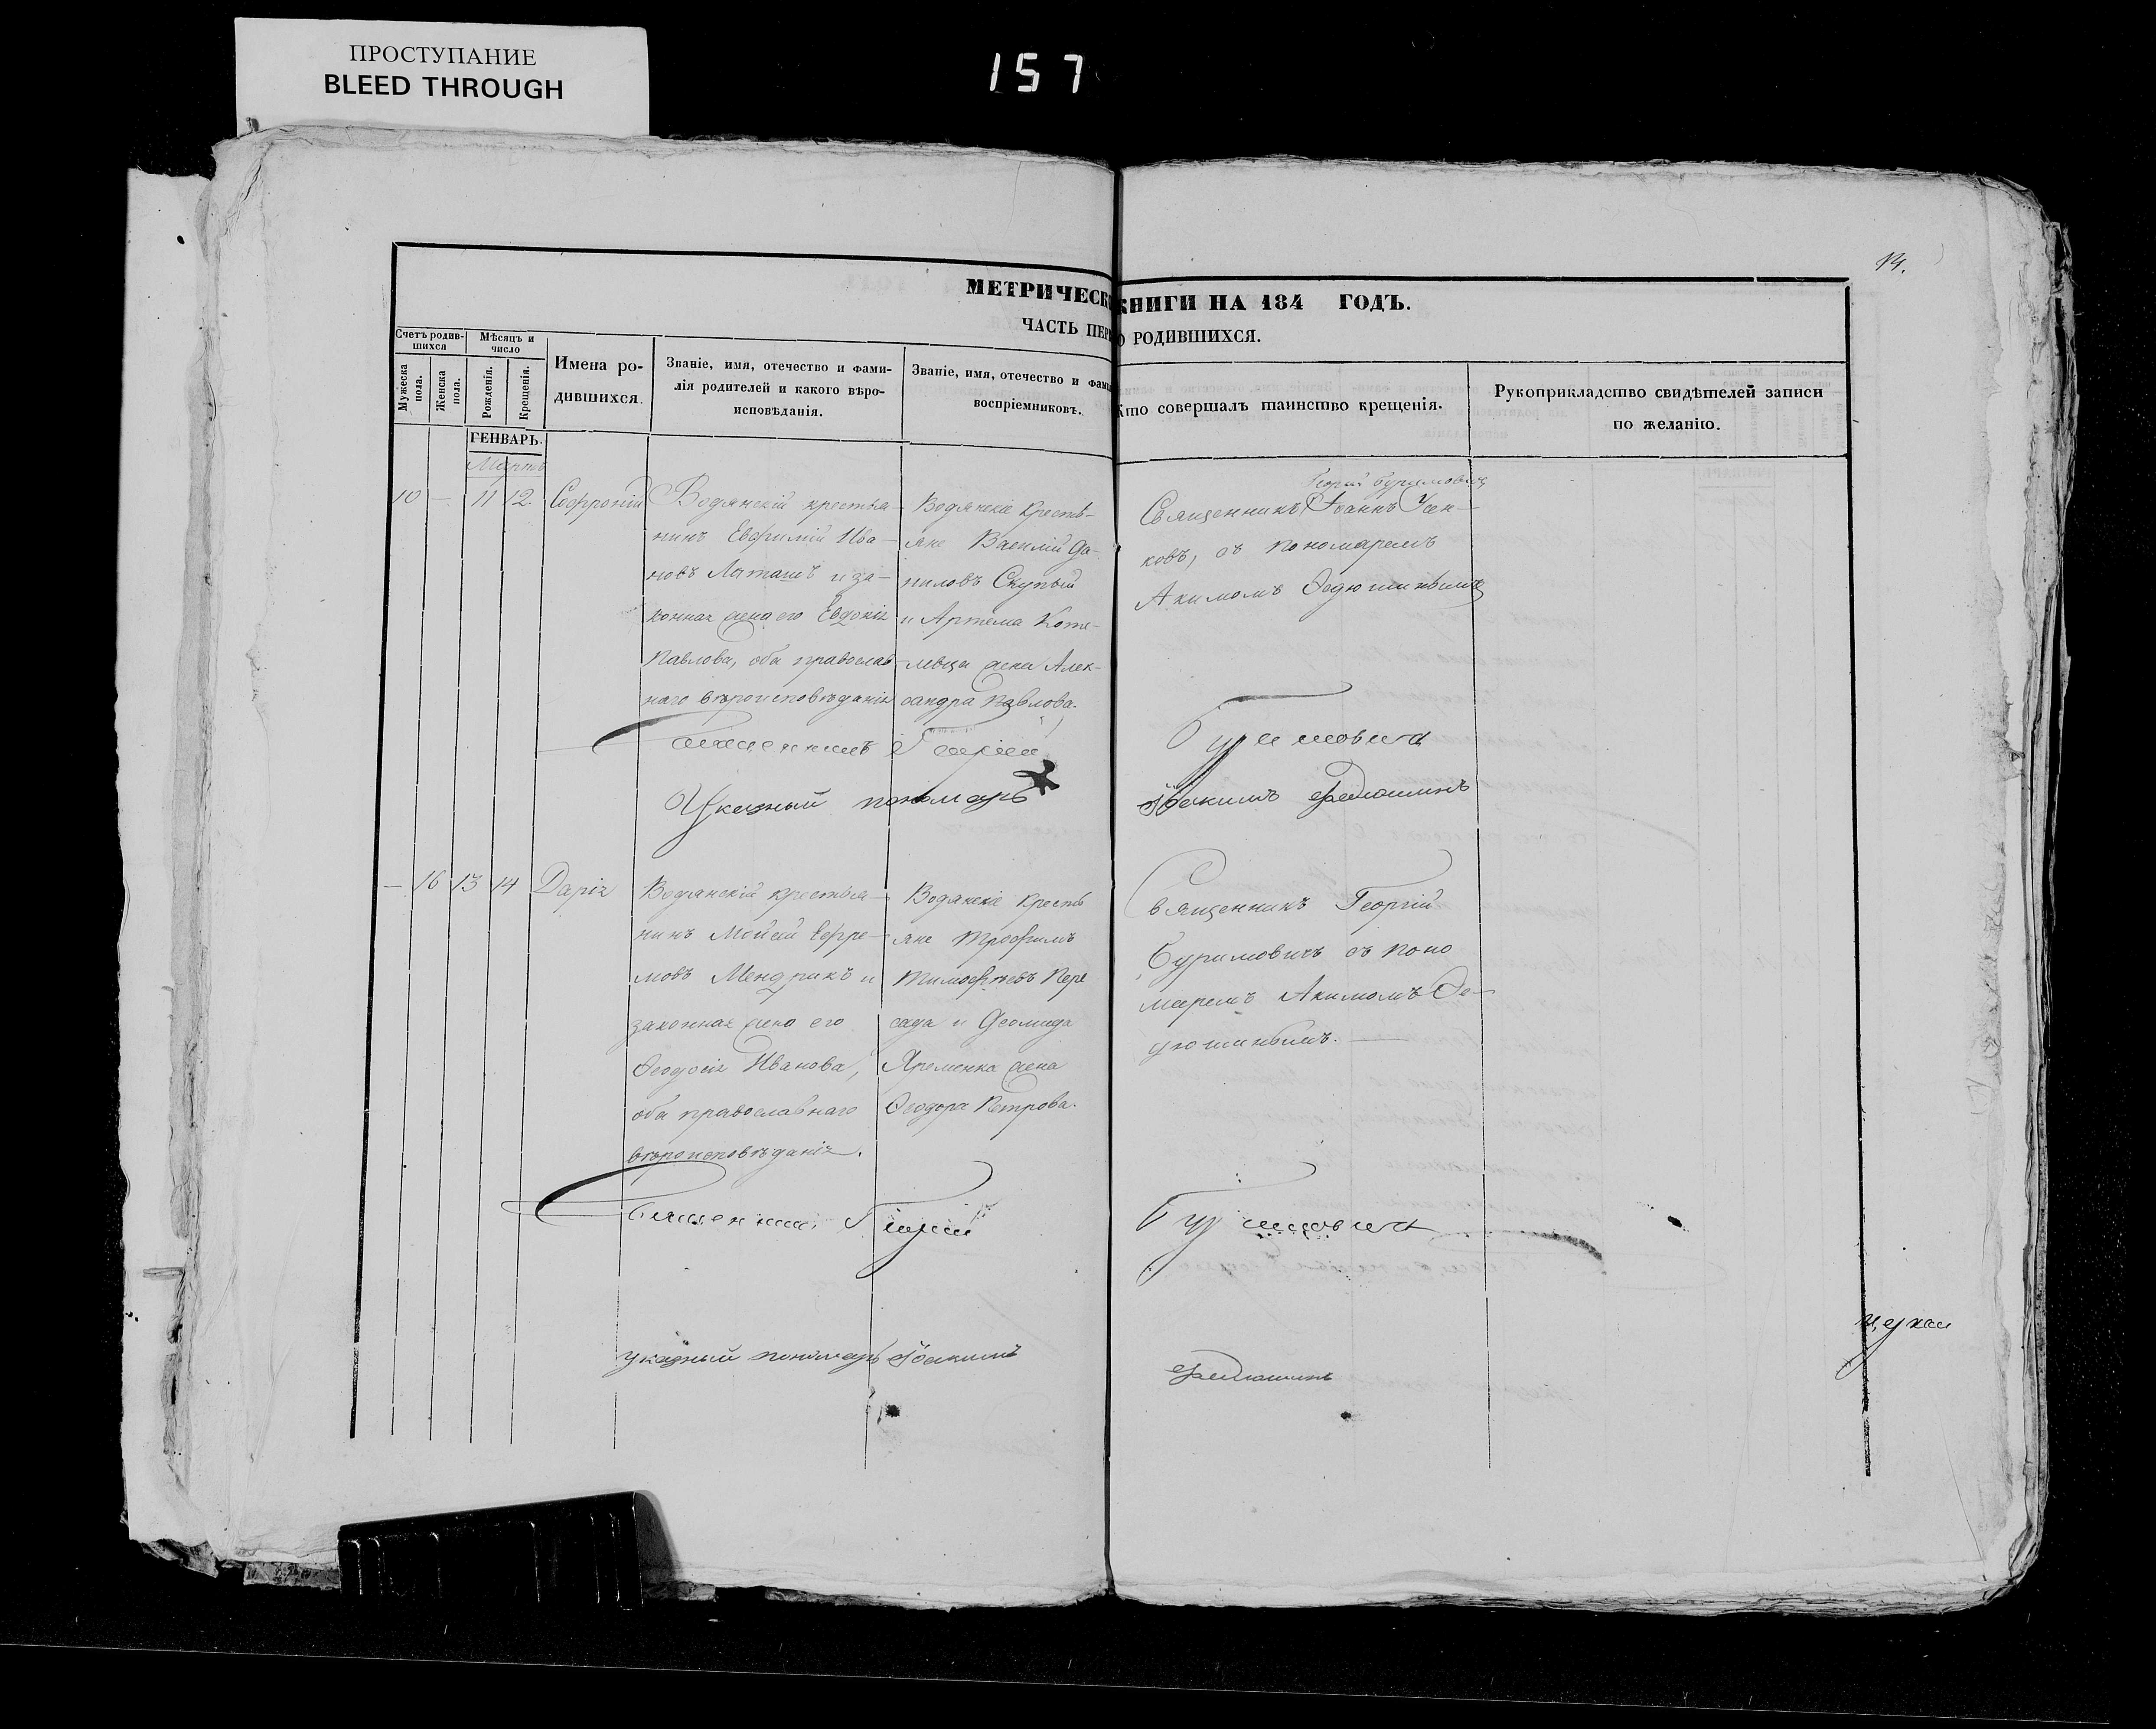 ПРОСТУПАНИЕ
BLEED THROUGH
157
14.
МЕТРИЧЕСК КНИГИ НА 184 ГОДЪ.
ЧАСТЬ ПЕР О РОДИВШИХСЯ.
Счетъ родив-
шихся
Мужеска
пола.
Женска
пола.
Мѣсяцъ и
число
Рожденія.
Крещенія.
Имена ро-
дившихся.
Званіе, имя, отечество и фами-
лія родителей и какого вѣро-
исповѣданія.
Званіе, имя, отечество и фами
воспріемниковъ.
Кто совершалъ таинство крещенія.
Рукоприкладство свидѣтелей записи
по желанію.
ГЕНВАРЬ.
Мартъ
10 — 11 12. Софроній
Водянскій крестья-
нинъ Евфимій Ива-
новъ Латашъ и за-
конная жена его Евдокія
Павлова, оба православ-
наго вѣроисповѣданія
Водянскіе кресть-
яне Василій Да-
ниловъ Скупый
и Артема Коте-
левца жена Алек-
сандра Павлова.
Георгій Буримовичъ
Священникъ Іоаннъ Усен-
ковъ, съ пономаремъ
Акимомъ Ѳедюшинымъ
Священникъ Георгій Буримовичъ
Указный пономарь Іоакимъ Федюшинъ
— 16 13 14 Дарія
Водянскій крестья-
нинъ Мойсей Ефре-
мовъ Мендрикъ и
законная жена его
Ѳеодосія Иванова,
оба православнаго
вѣроисповѣданія.
Водянскіе кресть
яне Трофимъ
Тимофѣевъ Пере
сада и Деомида
Яременка жена
Ѳеодора Петрова.
Священникъ Георгій
Буримовичъ съ поно
маремъ Акимомъ Ѳе-
дюшинымъ. —
Священникъ Георгій Буримовичъ
указный пономарь Іоакимъ Федюшинъ